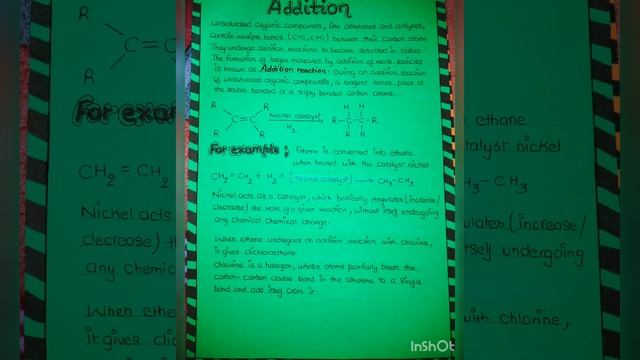 Addition
Unsaturated organic compounds, like alkenes and alkynes,
contain multiple bonds (C=C, C≡C) between their carbon atoms.
They undergo addition reactions to become saturated in nature.
The formation of larger molecules by addition of more radicles
is known as Addition reaction. During an addition reaction
of unsaturated organic compounds, a reagent takes place at
the double bonded or a triply bonded carbon atoms.
R R H H
C=C Nickel catalyst R-C-C-R
R R H2 R R
For example; Ethene is converted into ethane
when heated with the catalyst nickel.
CH2=CH2 + H2 + (Nickel catalyst) → CH3-CH3
Nickel acts as a catalyst, which basically regulates (increase/
decrease) the rate of a given reaction, without itself undergoing
any chemical chemical change.
When ethene undergoes an addition reaction with chlorine,
it gives dichloroethane.
Chlorine is a halogen, whose atoms partially break the
carbon-carbon double bond in the alkene to a single
bond and add itself cross it.
InShOt